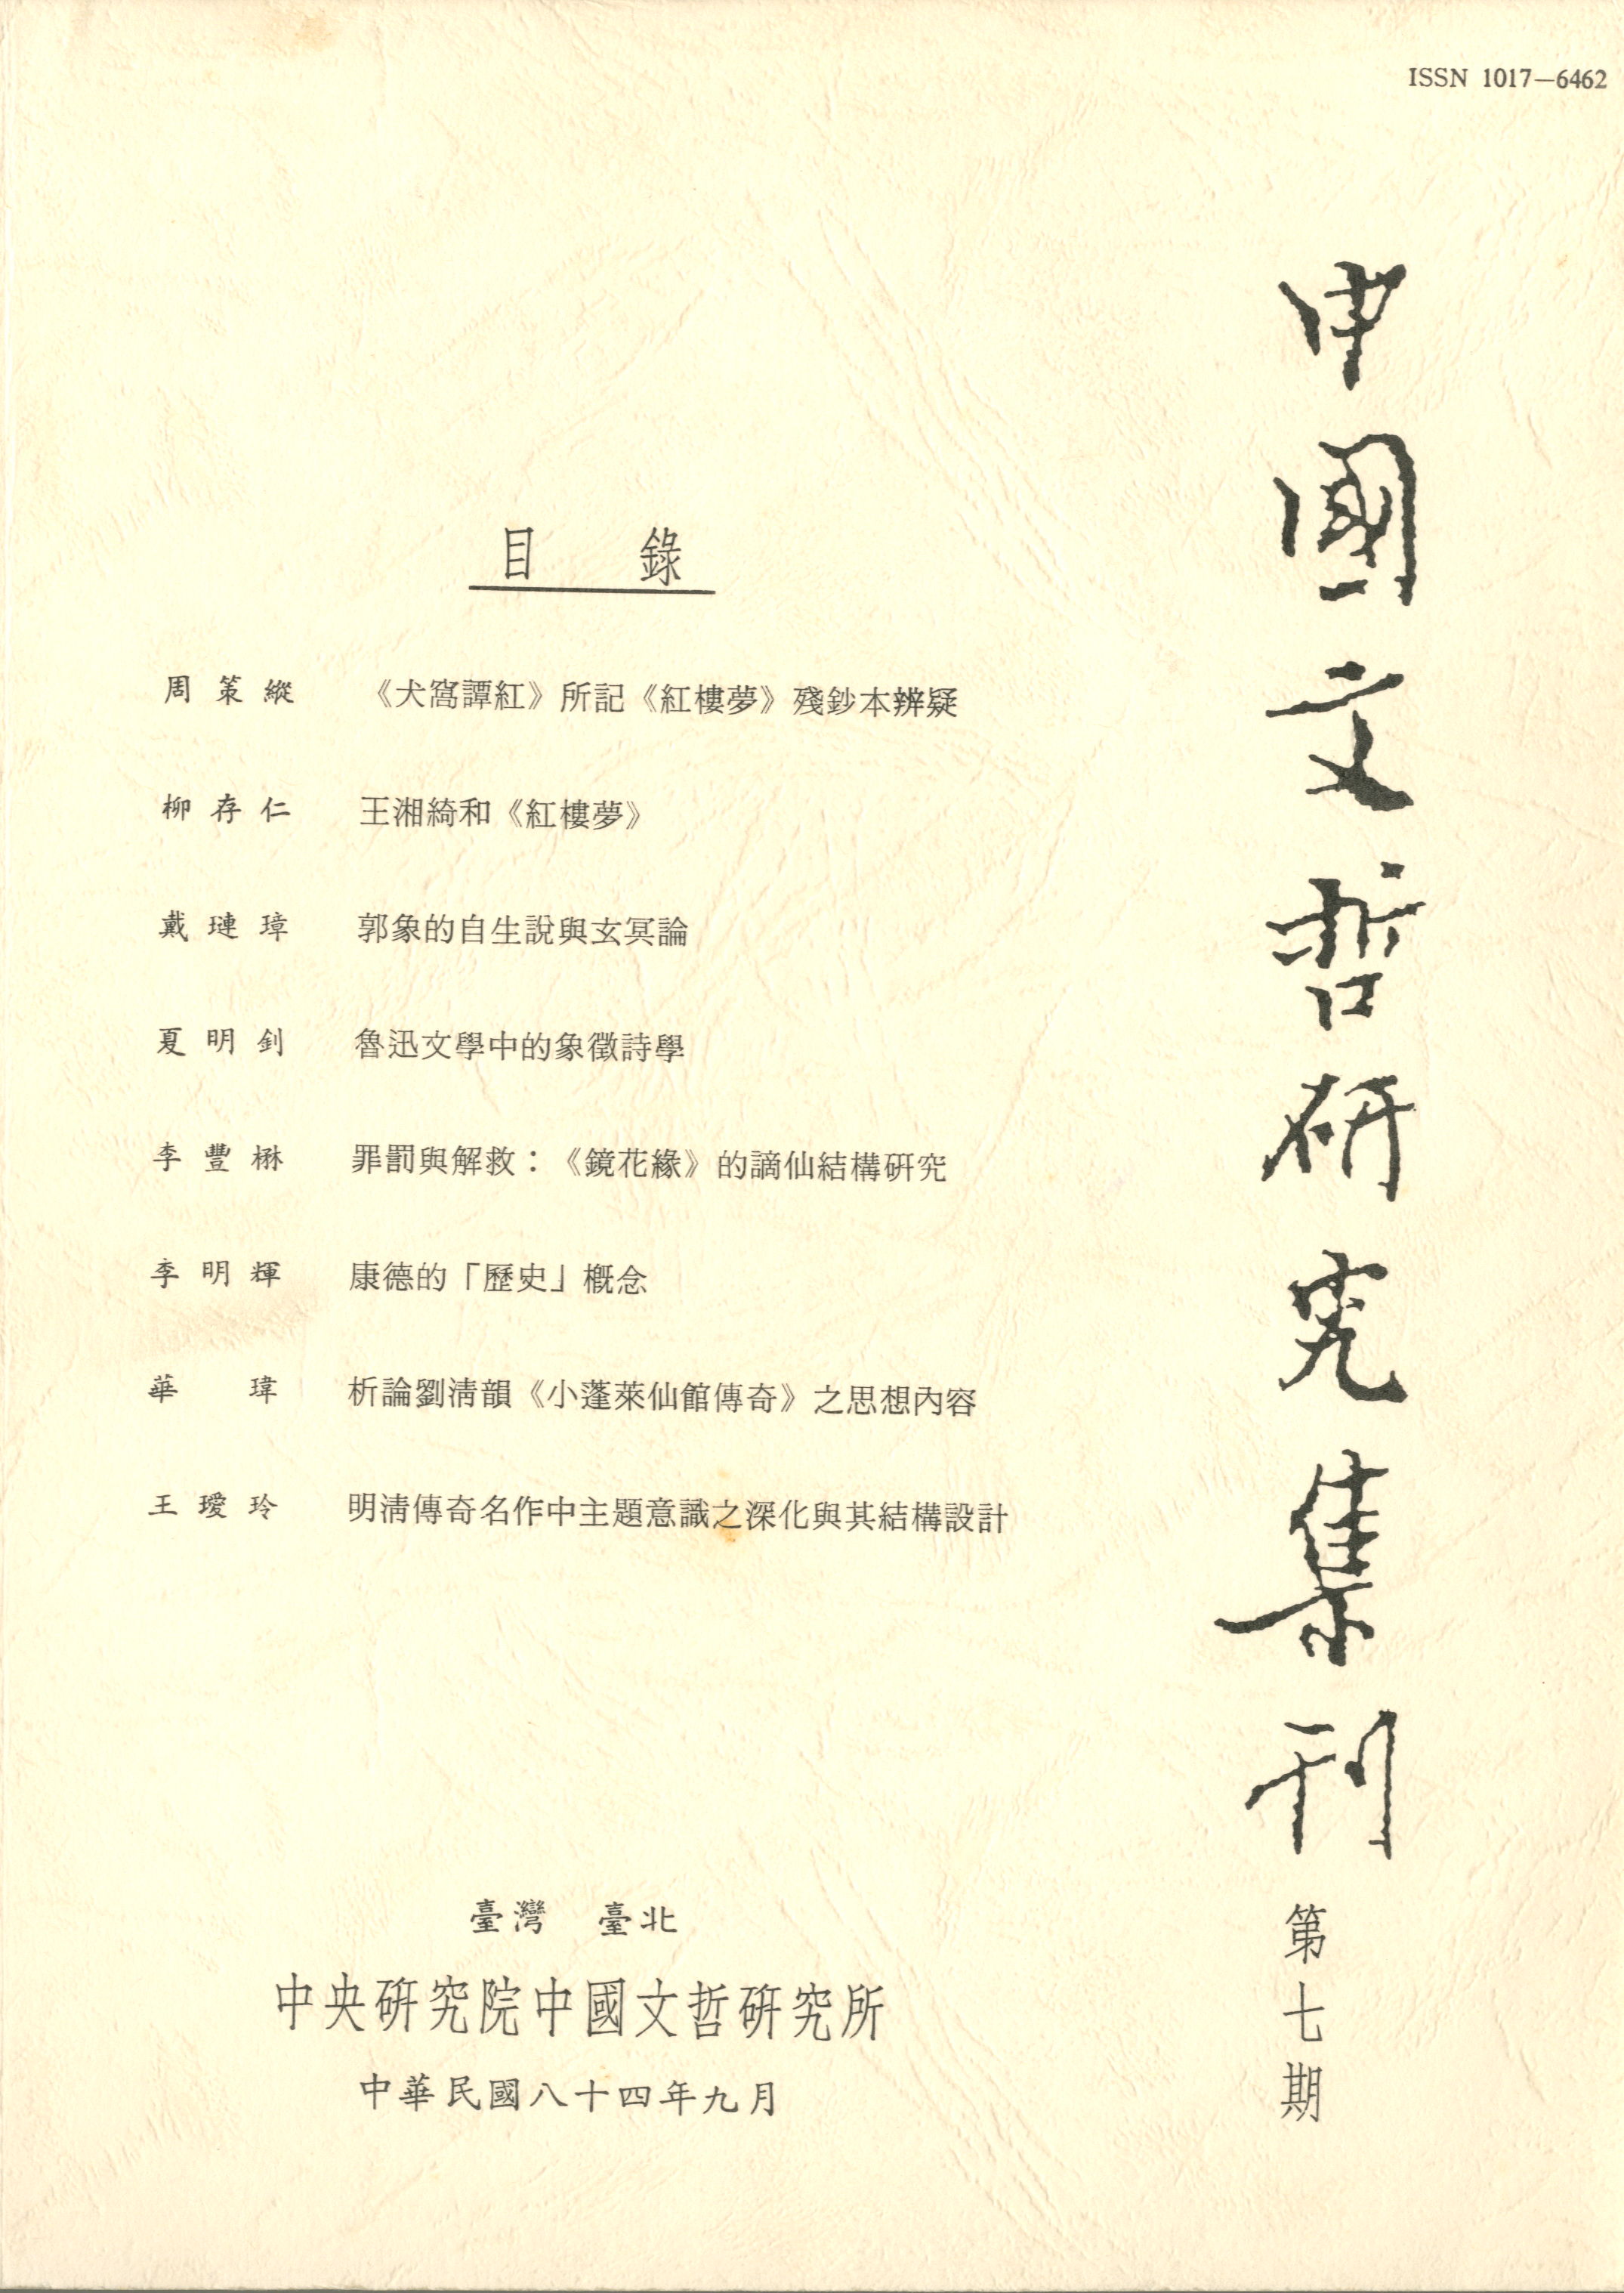 ISSN 1017—6462
中國文哲研究集刊
第七期
目錄
周策縱 《犬窩譚紅》所記《紅樓夢》殘鈔本辨疑
柳存仁 王湘綺和《紅樓夢》
戴璉璋 郭象的自生說與玄冥論
夏明釗 魯迅文學中的象徵詩學
李豐楙 罪罰與解救：《鏡花緣》的謫仙結構研究
李明輝 康德的「歷史」概念
華瑋 析論劉清韻《小蓬萊仙館傳奇》之思想內容
王璦玲 明清傳奇名作中主題意識之深化與其結構設計
臺灣 臺北
中央研究院中國文哲研究所
中華民國八十四年九月